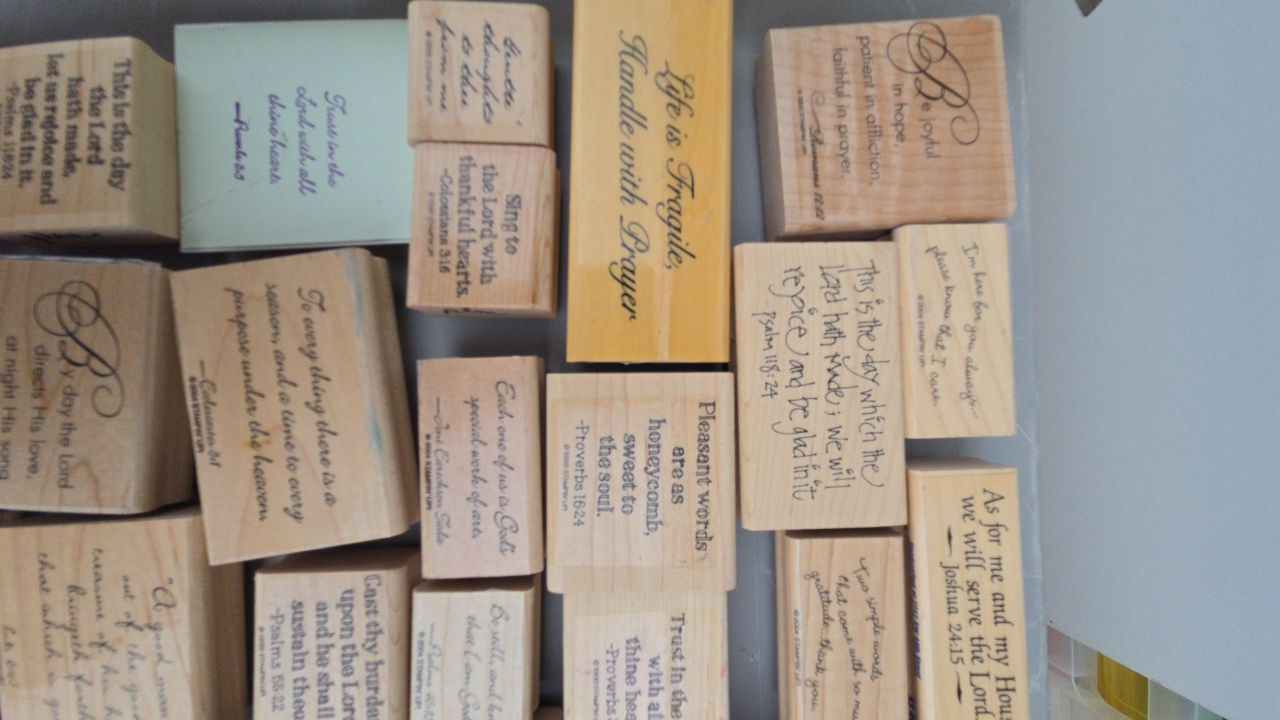 This is the day
the Lord
hath made,
let us rejoice and
be glad in it.
-Psalms 118:24
Trust in the
Lord with all
thine heart.
thoughts
to thee
from me
© 2004 STAMPIN' UP!
Life is Fragile,
Handle with Prayer
Be joyful
in hope,
patient in affliction,
faithful in prayer.
Romans 12:12
Sing to
the Lord with
thankful hearts.
-Colossians 3:16
I'm here for you always...
please know that I care.
© 2004 STAMPIN' UP!
This is the day which the
Lord hath made; we will
rejoice and be glad in it
psalm 118:24
By day the Lord
directs His love,
at night His song
To every thing there is a
season, and a time to every
purpose under the heaven
© 2004 STAMPIN' UP!
Each one of us is God's
special work of art.
—Joni Eareckson Tada
© 2004 STAMPIN' UP!
Pleasant words
are as
honeycomb,
sweet to
the soul.
-Proverbs 16:24
As for me and my Hous
we will serve the Lord
— Joshua 24:15 —
Two simple words
that come with so mu
gratitude...thank you.
"A good man
out of the good
treasure of his h
bringeth forth
that which is g
Cast thy burden
upon the Lord
and he shall
sustain thee.
-Psalms 55:22
Be still, and kn
that I am God
Trust in the
with al
thine hea
-Proverbs